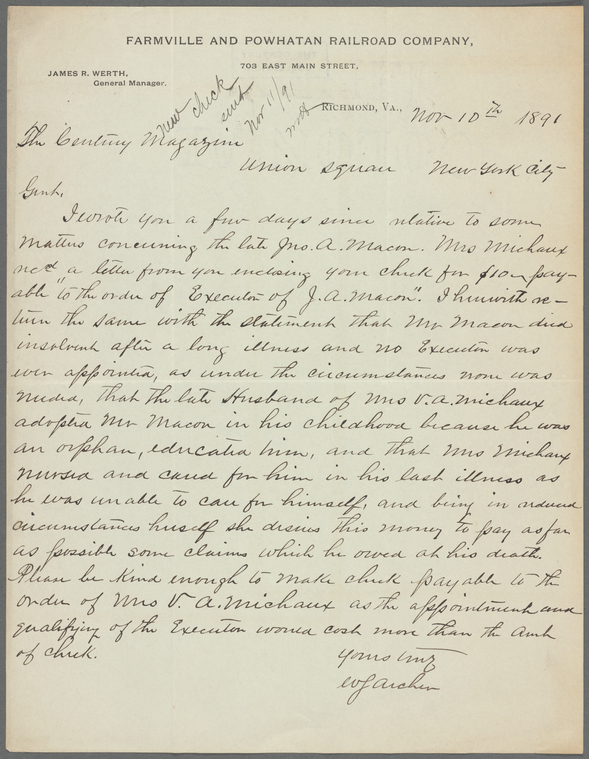 FARMVILLE AND POWHATAN RAILROAD COMPANY,
703 EAST MAIN STREET,
JAMES R. WERTH,
General Manager.
new check
sent
Nov 11/91
RICHMOND, VA., Nov 10th 1891
The Century Magazine
Union Square New York City
Gent,
I wrote you a few days since relative to some
matters concerning the late Jno. A. Macon. Mrs Michaux
recd a letter from you enclosing your check for $10 pay-
able "to the order of Executor of J. A. Macon". I herewith re-
turn the same with the statement that Mr Macon died
insolvent after a long illness and no Executor was
ever appointed, as under the circumstances none was
needed, that the late Husband of Mrs V. A. Michaux
adopted Mr Macon in his childhood because he was
an orphan, educated him, and that Mrs Michaux
nursed and cared for him in his last illness as
he was unable to care for himself, and being in reduced
circumstances herself she desires this money to pay as far
as possible some claims which he owed at his death.
Please be kind enough to make check payable to the
order of Mrs V. A. Michaux as the appointment and
qualifying of the Executor would cost more than the amt
of check.
Yours truly
W J Archer